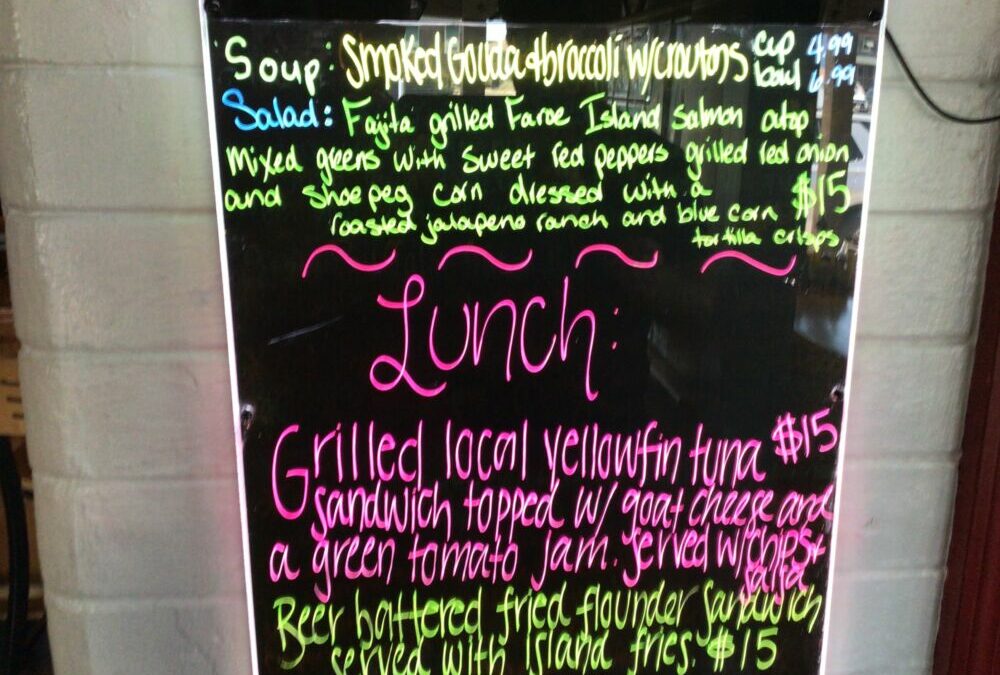 Soup: Smoked Gouda & broccoli w/croutons cup 4.99
bowl 6.99
Salad: Fajita grilled Faroe Island salmon atop
mixed greens with sweet red peppers grilled red onion
and shoepeg corn dressed with a $15
roasted jalapeno ranch and blue corn
tortilla crisps
Lunch:
Grilled local yellowfin tuna $15
sandwich topped w/ goat cheese and
a green tomato jam. served w/chips+
salsa
Beer battered fried flounder sandwich
served with island fries. $15